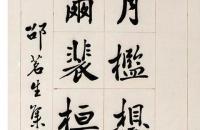 月檻想
爾裴桓
邵茗生集